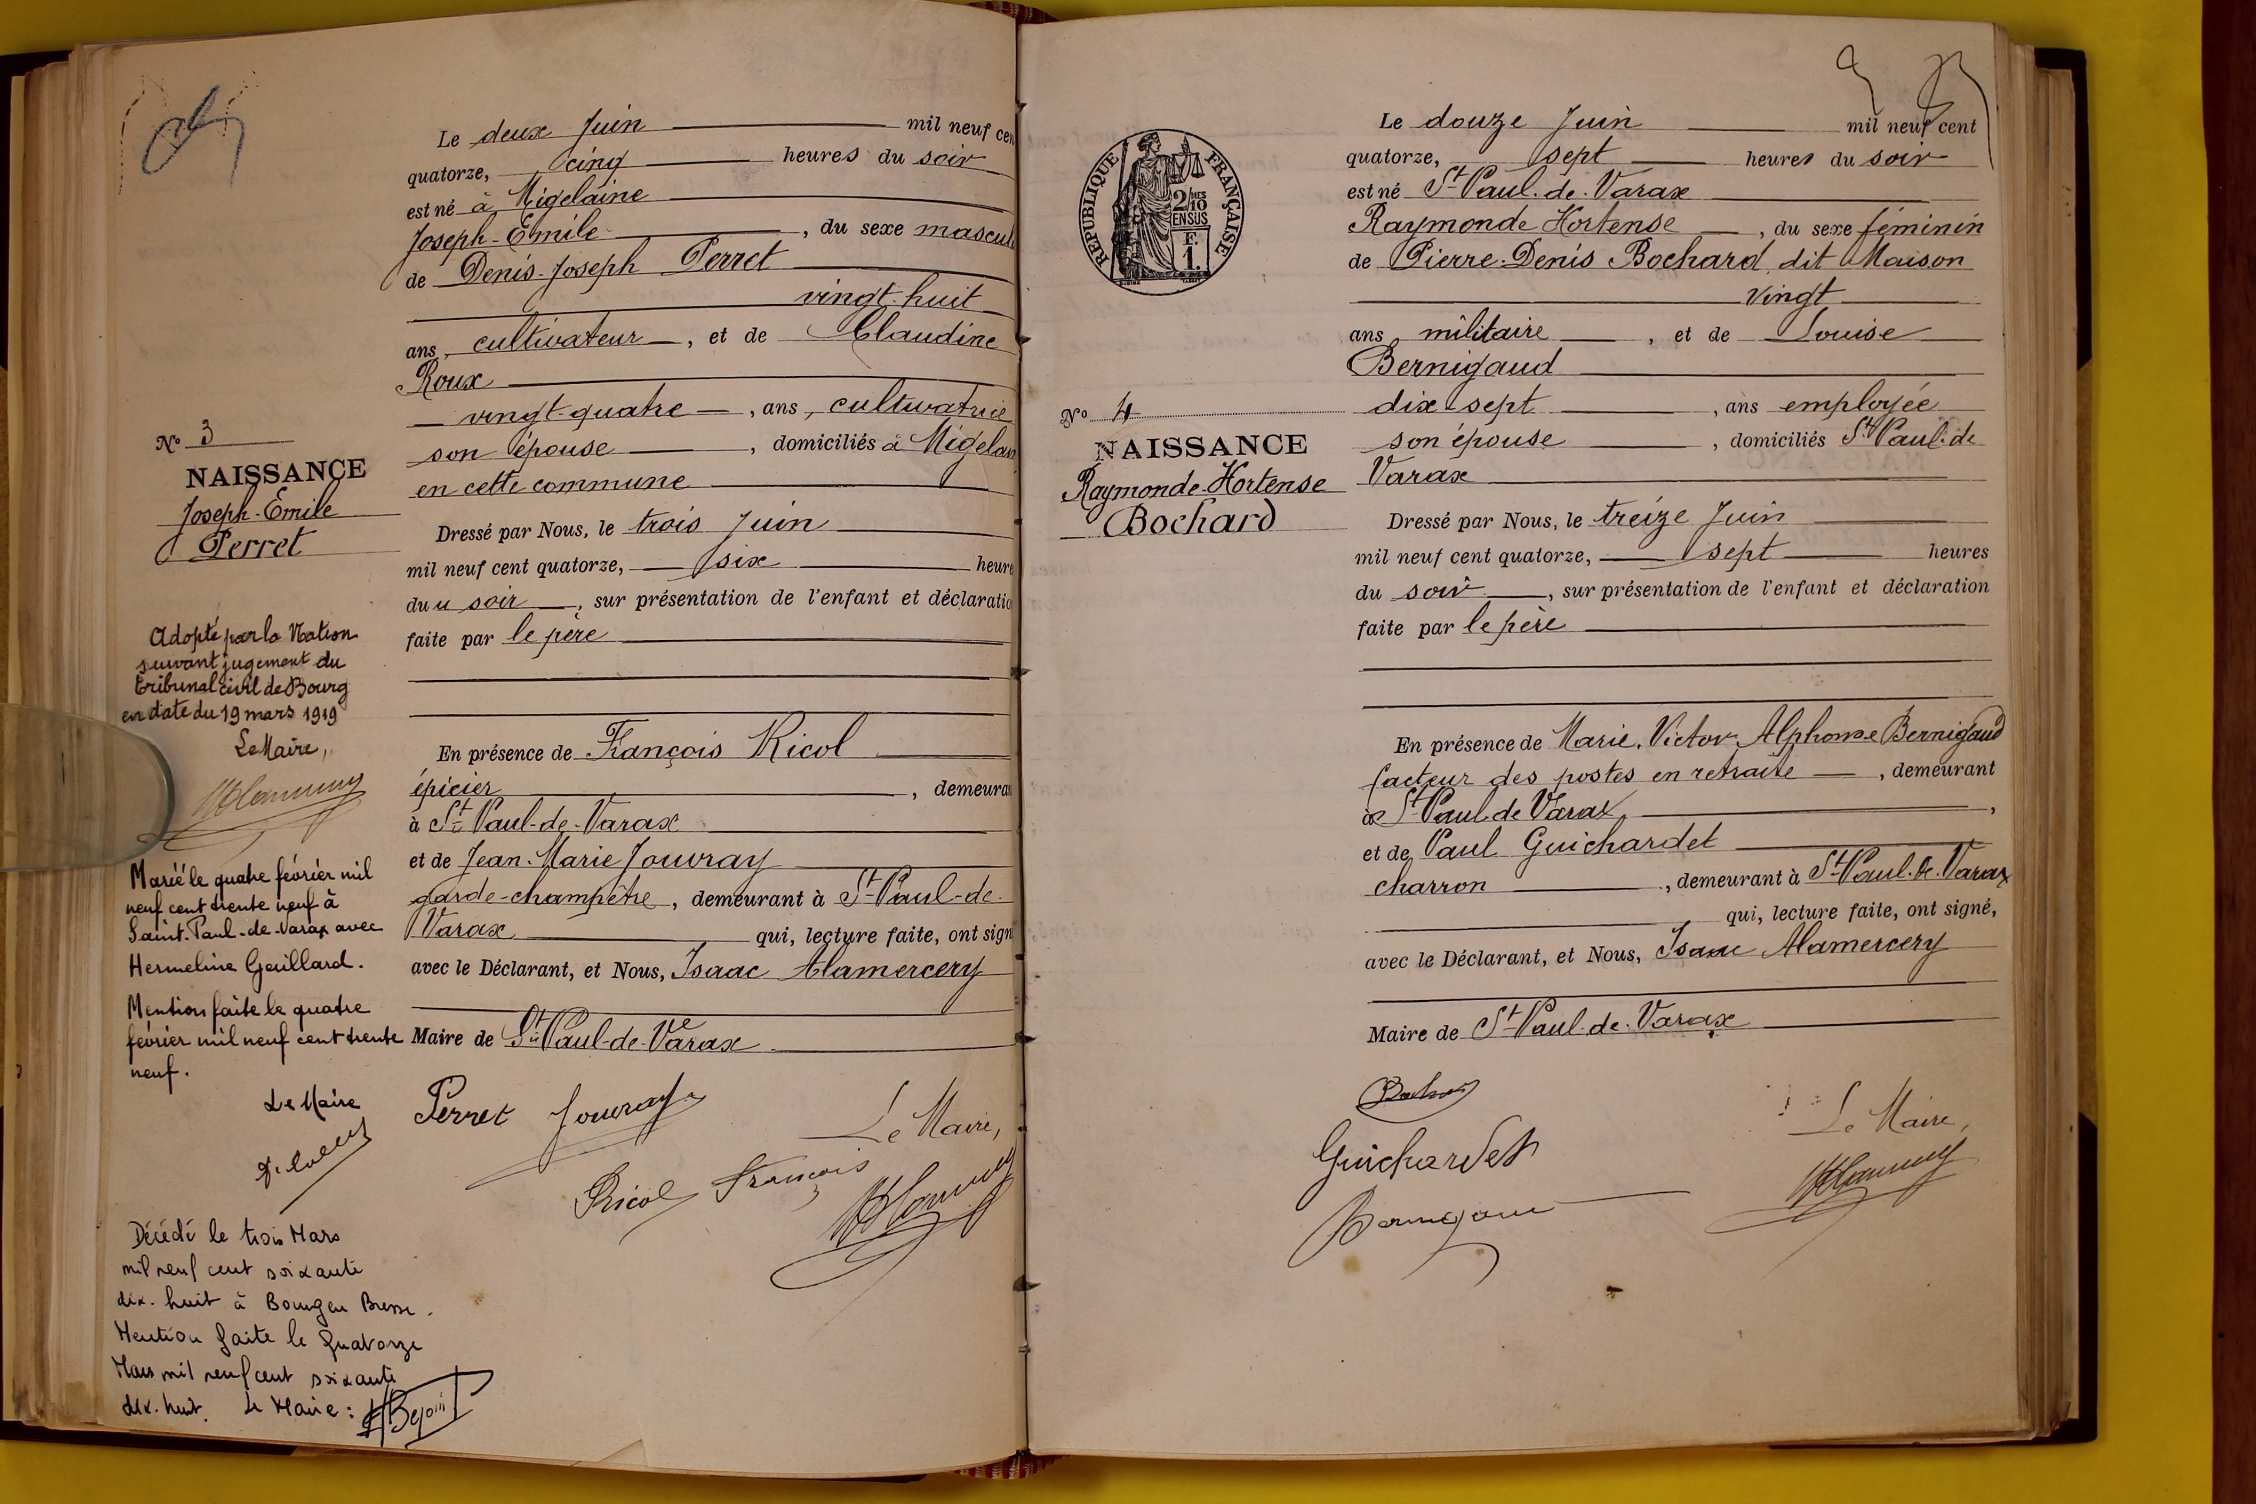 Le deux Juin mil neuf cen
quatorze, cinq heures du soir
est né à Migelaine
Joseph-Emile, du sexe mascul
de Denis-Joseph Perret
vingt-huit
ans, cultivateur, et de Claudine
Roux
vingt-quatre, ans, cultivatrice
son épouse, domiciliés à Migelain
en cette commune
Nº 3
NAISSANCE
Joseph-Emile
Perret
Dressé par Nous, le trois Juin
mil neuf cent quatorze, six heure
du u soir, sur présentation de l'enfant et déclaratio
faite par le père
En présence de François Ricol
épicier, demeuran
à St Paul-de-Varax
et de Jean-Marie Jouvray
garde-champêtre, demeurant à St Paul-de-
Varax qui, lecture faite, ont sign
avec le Déclarant, et Nous, Isaac Alamercery
Maire de St Paul-de-Varax
Perret Jouvray
Le Maire,
Ricol François
Adopté par la Nation
suivant jugement du
tribunal civil de Bourg
en date du 19 mars 1919
Le Maire,
Marié le quatre février mil
neuf cent trente neuf à
Saint-Paul-de-Varax avec
Hermeline Gouillard.
Mention faite le quatre
février mil neuf cent trente
neuf.
Le Maire
Décédé le trois Mars
mil neuf cent soixante
dix-huit à Bourg en Bresse.
Mention faite le quatorze
Mars mil neuf cent soixante
dix-huit. Le Maire :
Le douze Juin mil neuf cent
quatorze, sept heures du soir
est né St Paul-de-Varax
Raymonde Hortense, du sexe féminin
de Pierre-Denis Bochard dit Maison
vingt
ans militaire, et de Louise
Bernigaud
dix-sept, ans employée
son épouse, domiciliés St Paul-de
Varax
RÉPUBLIQUE FRANÇAISE
2/10
EN SUS
F.
1.
Nº 4
NAISSANCE
Raymonde-Hortense
Bochard
Dressé par Nous, le treize Juin
mil neuf cent quatorze, sept heures
du soir, sur présentation de l'enfant et déclaration
faite par le père
En présence de Marie, Victor, Alphonse Bernigaud
facteur des postes en retraite, demeurant
à St Paul de Varax,
et de Paul Guichardet
charron, demeurant à St Paul-de-Varax
qui, lecture faite, ont signé,
avec le Déclarant, et Nous, Isaac Alamercery
Maire de St Paul-de-Varax
Le Maire,
Guichardet